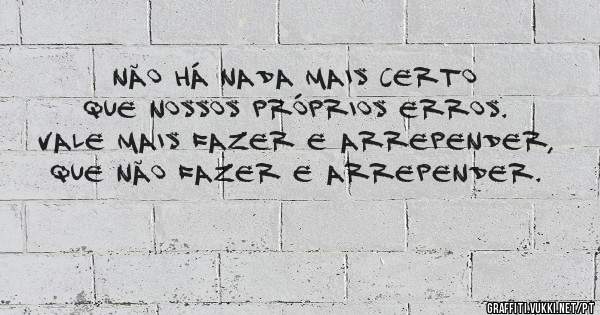 NÃO HÁ NADA MAIS CERTO
QUE NOSSOS PRÓPRIOS ERROS.
VALE MAIS FAZER E ARREPENDER,
QUE NÃO FAZER E ARREPENDER.
GRAFFITI.VUKKI.NET/PT